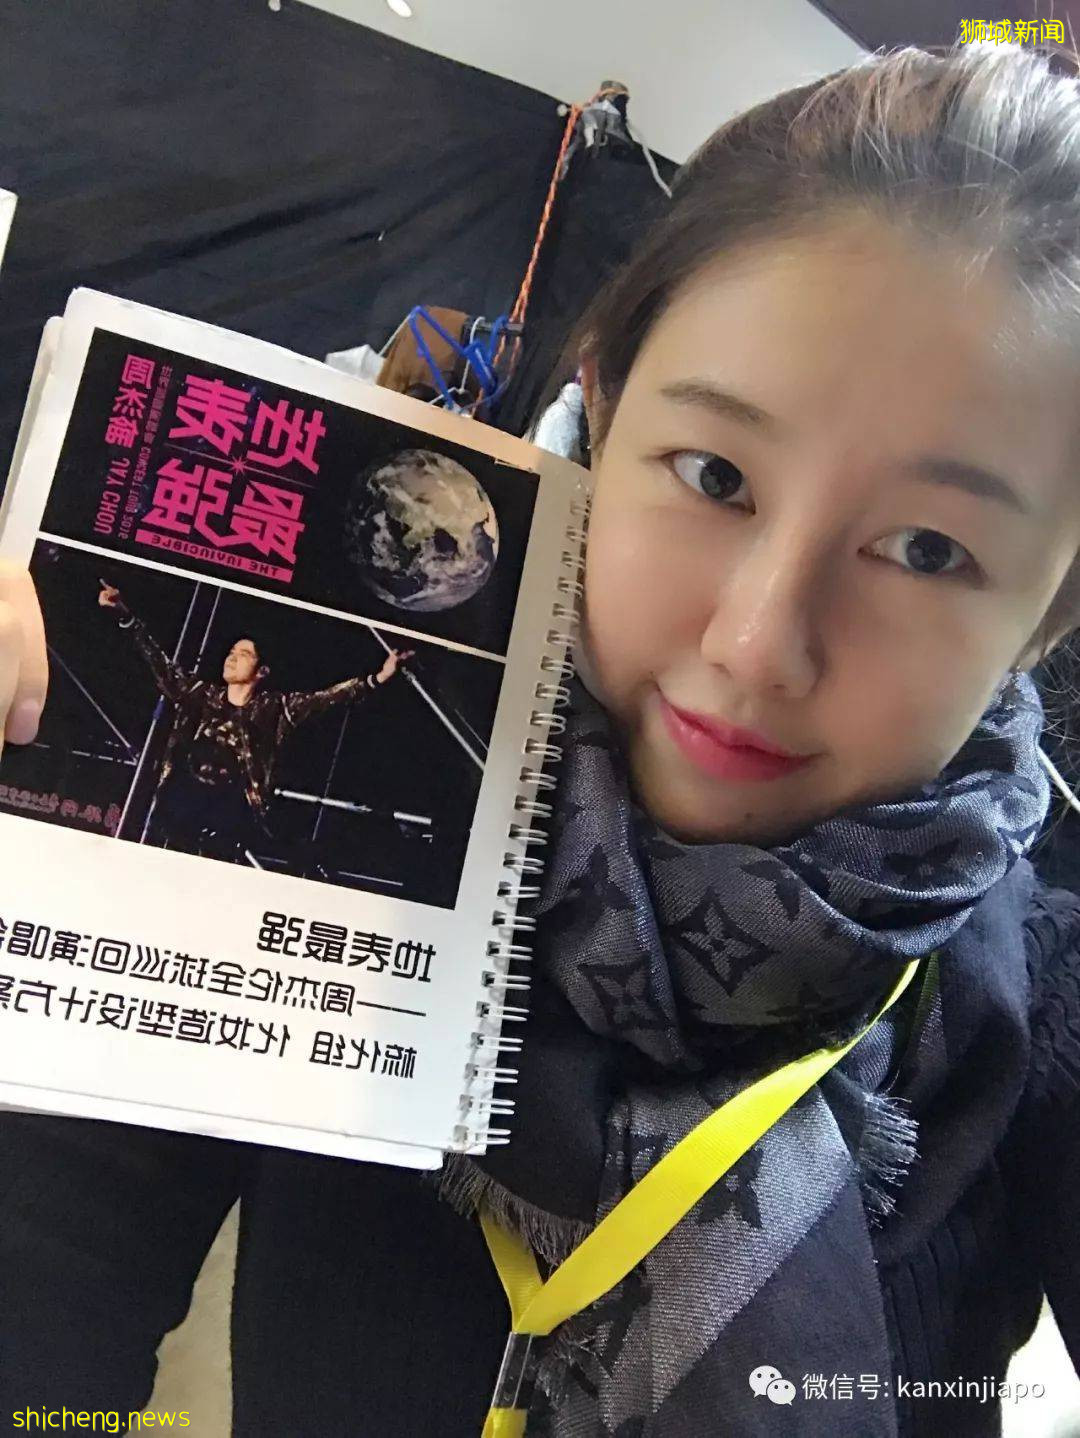 狮城新闻
周杰倫 JAY CHOU
CONCERT TOUR 2016
地表
最強
THE INVINCIBLE
地表最强
——周杰伦全球巡回演唱会
梳化组 化妆造型设计方案
微信号: kanxinjiapo
shicheng.news